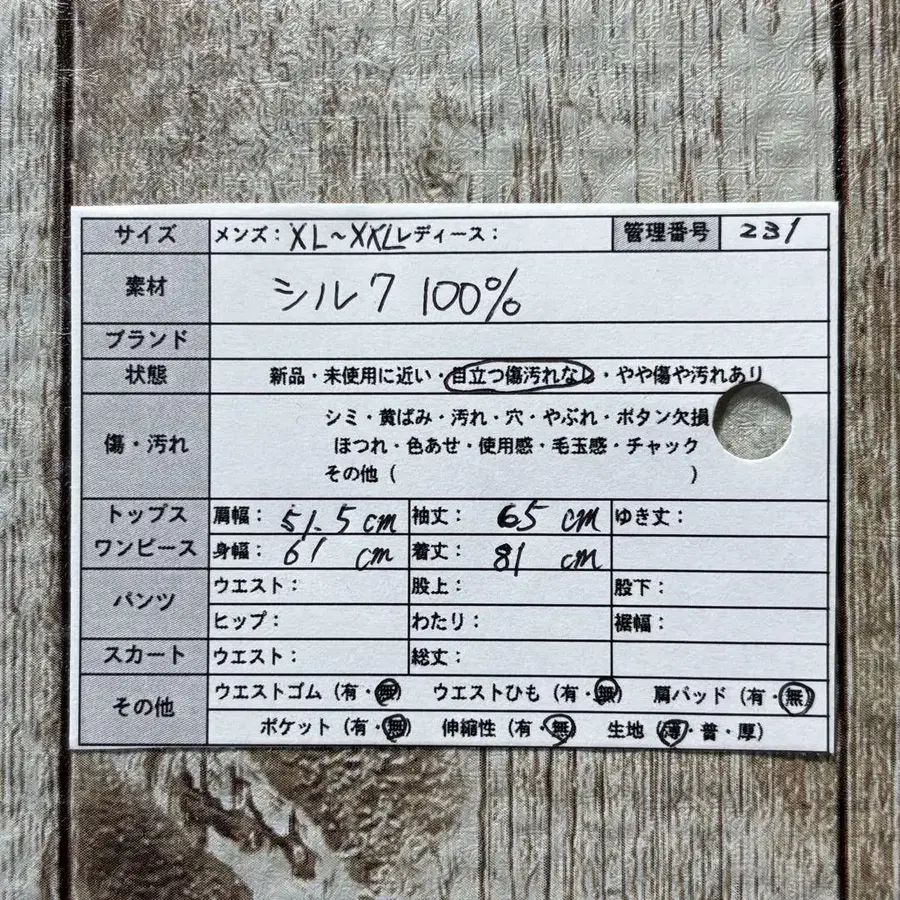 サイズ メンズ：XL～XXL レディース： 管理番号 231
素材 シルク 100%
ブランド
状態 新品・未使用に近い・目立つ傷汚れなし・やや傷や汚れあり
傷・汚れ シミ・黄ばみ・汚れ・穴・やぶれ・ボタン欠損
ほつれ・色あせ・使用感・毛玉感・チャック
その他（ ）
トップス ワンピース 肩幅：51.5cm 袖丈：65cm ゆき丈：
身幅：61cm 着丈：81cm
パンツ ウエスト： 股上： 股下：
ヒップ： わたり： 裾幅：
スカート ウエスト： 総丈：
その他 ウエストゴム（有・無） ウエストひも（有・無） 肩パッド（有・無）
ポケット（有・無） 伸縮性（有・無） 生地（薄・普・厚）